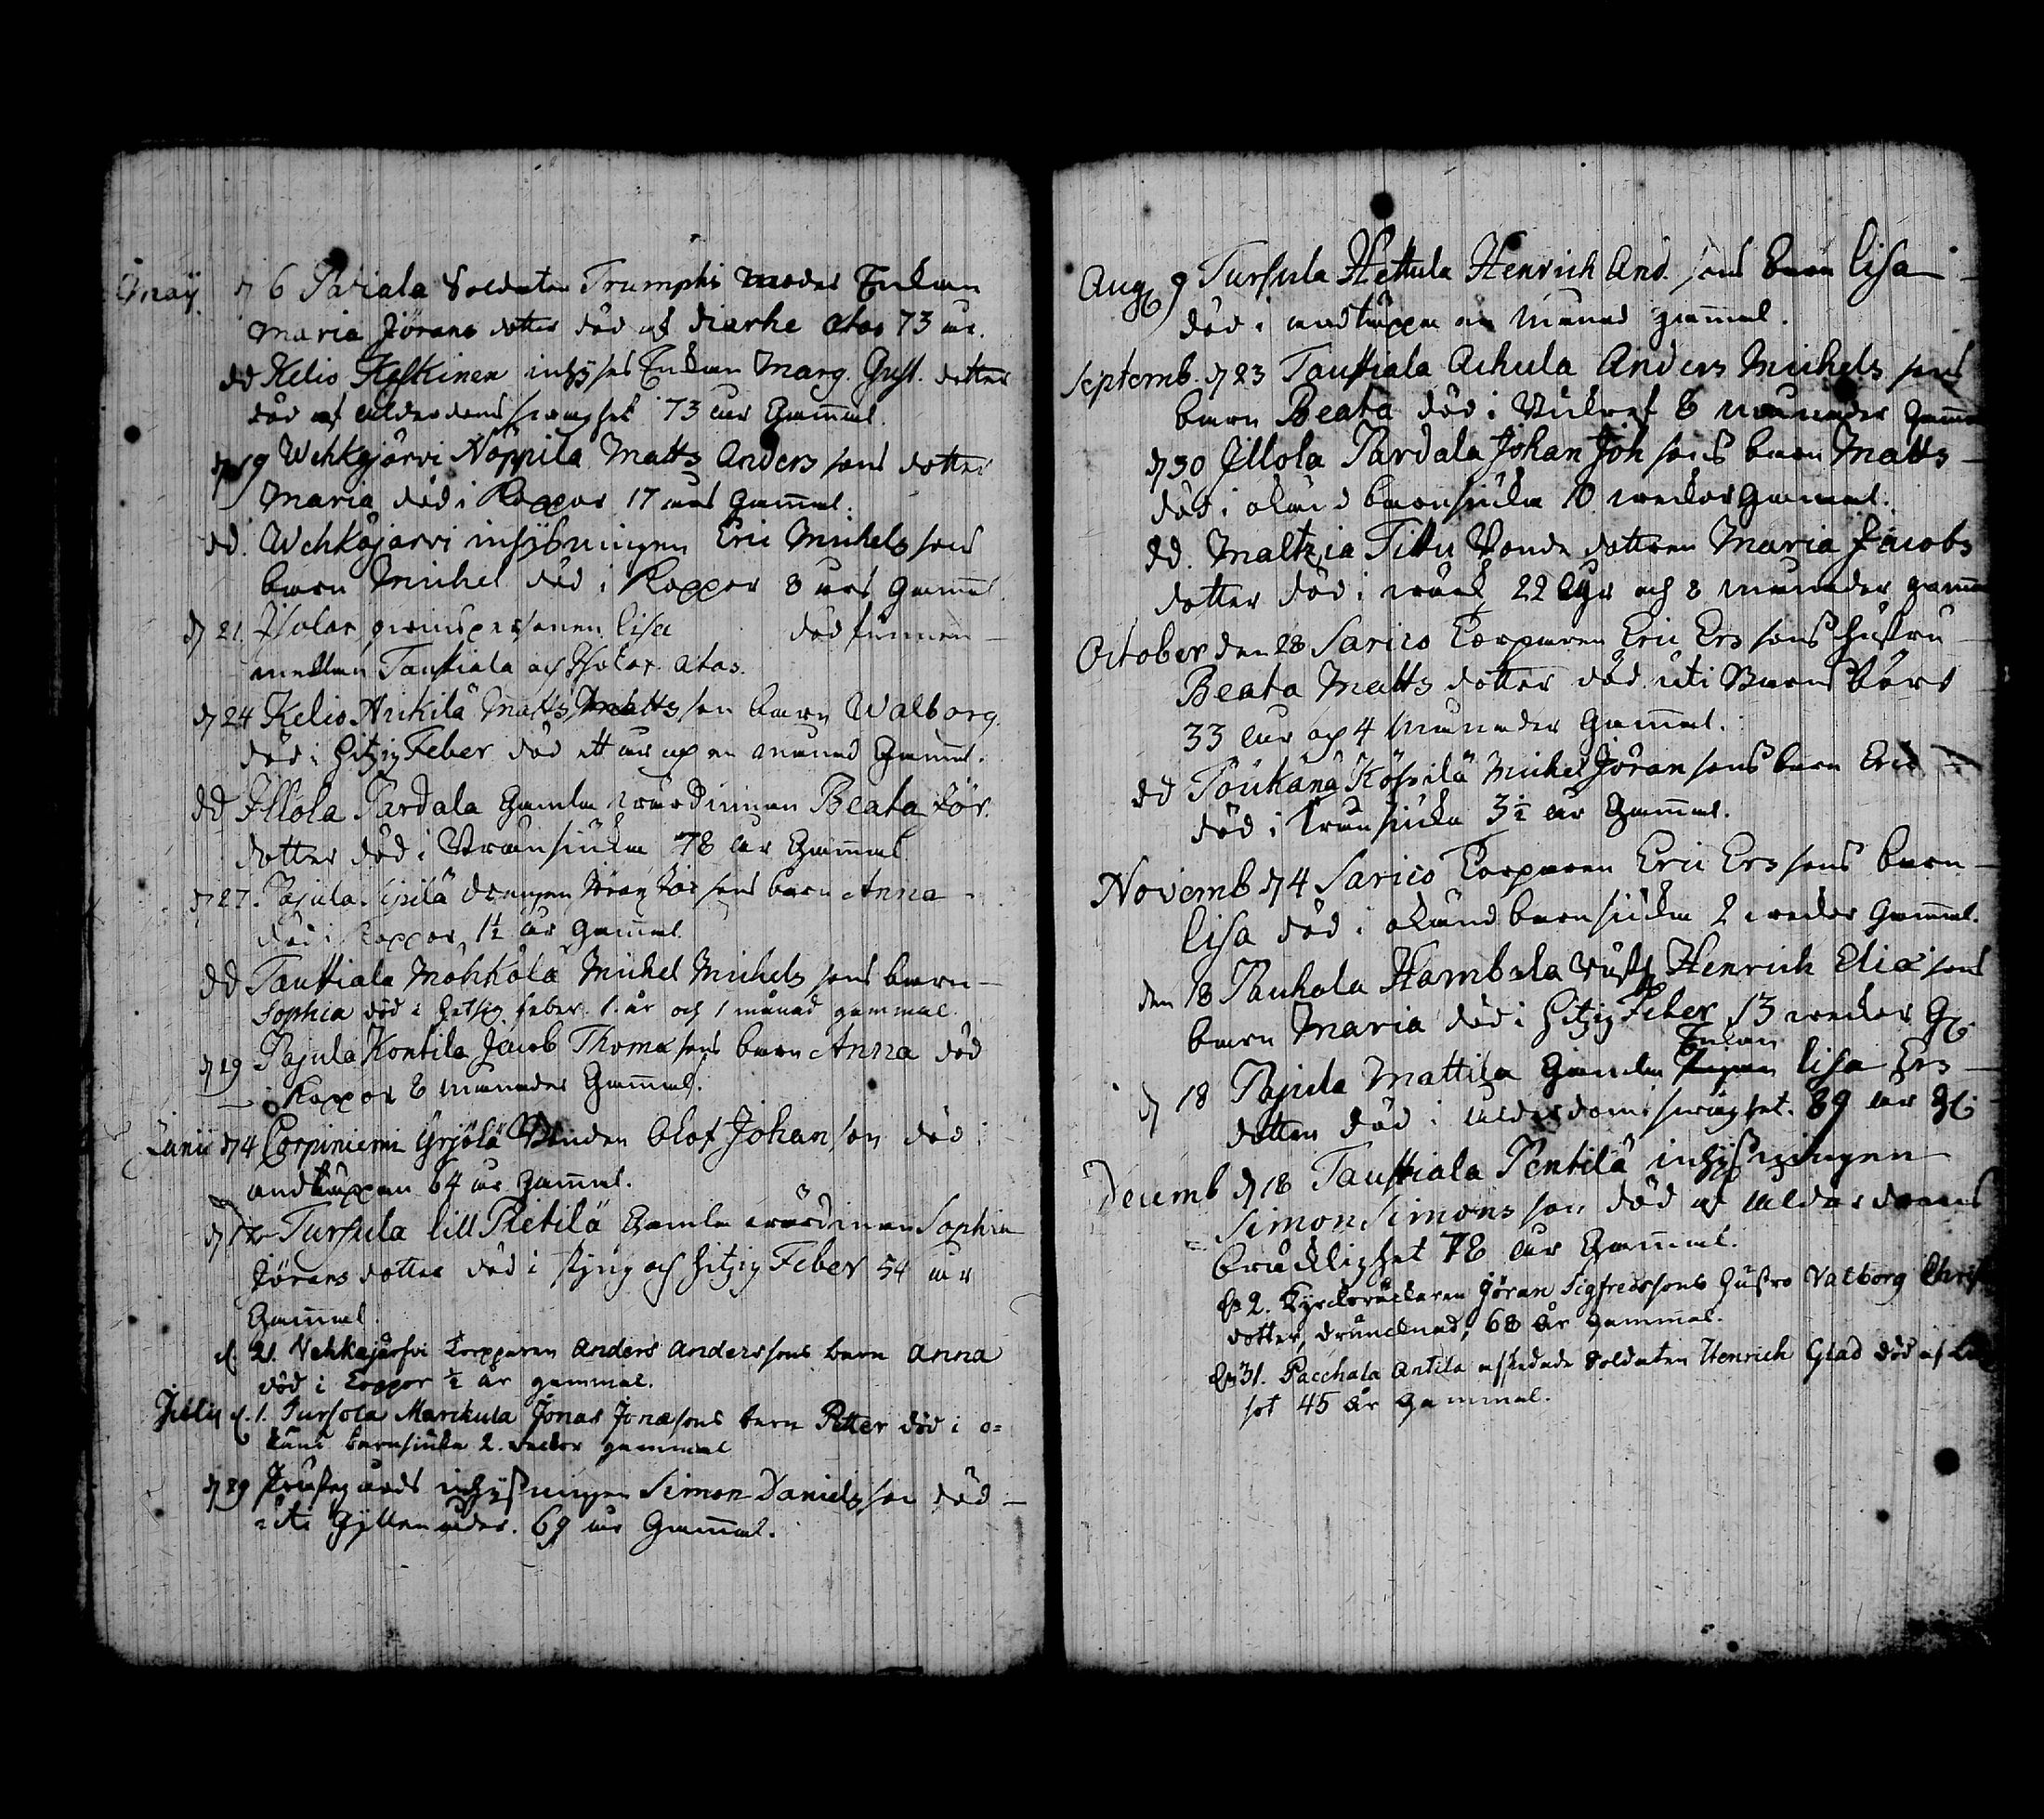 May d 6 Patiala Soldaten Trumphs moder Enkan
Maria Jörans dotter död af diarhe ætas 73 år.
dd Kelio Keskinen inhyses Enkan Marg. Gust. dotter
död af ålderdoms swaghet 73 åhr Gam̄al.
d 19 Wehkajärvi Nöppilä Matts Anders sons dotter
Maria död i Koppor 17 åhrs gam̄al.
dd. Wehkajärvi inhÿsningen Eric Michels sons
barn Michel död i Koppor 8 åhrs gam̄al.
d 21. Lisa död funnen
mellan Tauttiala och ætas.
d 24 Kelio Nikilä Matts Matts son barn Walborg
död i hitzig Feber död ett åhr och en månad Gam̄al.
dd Illola Pärdalä Gamla wärdinnan Beata Jör.
dotter död i Brånsiuka 78 åhr Gam̄al
d 27. Pajula Sipilä drengen Jöran Jör sons barn Anna
död i Koppor 1½ åhr Gam̄al.
dd Tauttiala Mohkala Michel Michels sons barn
Sophia död i hetsig feber 1 år och 1 månad gammal.
d 29 Pajula Kontila Jacob Thomæ sons barn Anna död
i Koppor 8 månader Gam̄al.
Junii d 4 Corpiniemi Yrjölä Bonden Olof Johan son död i
andtäppan 64 åhr Gam̄al.
d Turssula lill Pietilä Gamla wärdinnan Sophia
Jörans dotter död i styng och hitzig Feber 54 åhr
Gam̄al.
d. 21. Vehkajärfvi Torpparen Anders Anderssons barn Anna
död i Koppor ½ år gammal.
Julii d. 1. Tursola Marckula Jonas Jonæsons barn Petter död i o=
känd barnsiuka 2. veckor gammal
d 29 Prästgårds inhÿsningen Simon Daniels son död
uti Gyllenåder. 69 åhr Gam̄al.
Aug 9 Turssula Hettula Henrich And. sons barn Lisa
död i andtäppa en månad gam̄al.
Septemb. d 23 Tauttiala Ackula Anders Michels sons
barn Beata död i Bukref 8 månader Gam̄al
d 30 Illola Pärdalä Johan Joh sons barn Matts
död i okänd barnsiuka 10 weckor Gam̄al.
dd. Maltzia Tittu Bonde dottren Maria Jacobs
dotter död i 22 åhr och 8 månader gam̄al
October den 28 Sarico Torparen Eric Ers sons hustru
Beata Matts dotter död uti Barns Börd
33 åhr och 4 månader Gam̄al.
dd Poukana Köspilä Michel Jöran sons barn Eric
död i Bränsiuka 3½ åhr Gam̄al.
Novemb d 4 Sarico Torparen Eric Ers sons barn
Lisa död i okänd barnsiuka 2 weckor Gam̄al.
den 18 Pauhola Hambula Henrich Eliæ sons
barn Maria död i hitzig Feber 13 weckor G
Enkan
d 18 Pajula Mattila Gamla Pigan Lisa Ers
dotter död i ålderdoms swaghet. 89 åhr G
Decemb d 18 Tauttiala Pentilä inhÿsningen
Simon Simons son död af ålderdoms
bräcklighet 78 åhr Gam̄al.
2. Kyrckowäktaren Göran Sigfredssons hustro Valborg Christ
dotter, drunknad, 68 år gammal.
31. Pacchala Antila afskedade Soldaten Henrich Glad död af
sot 45 år gammal.